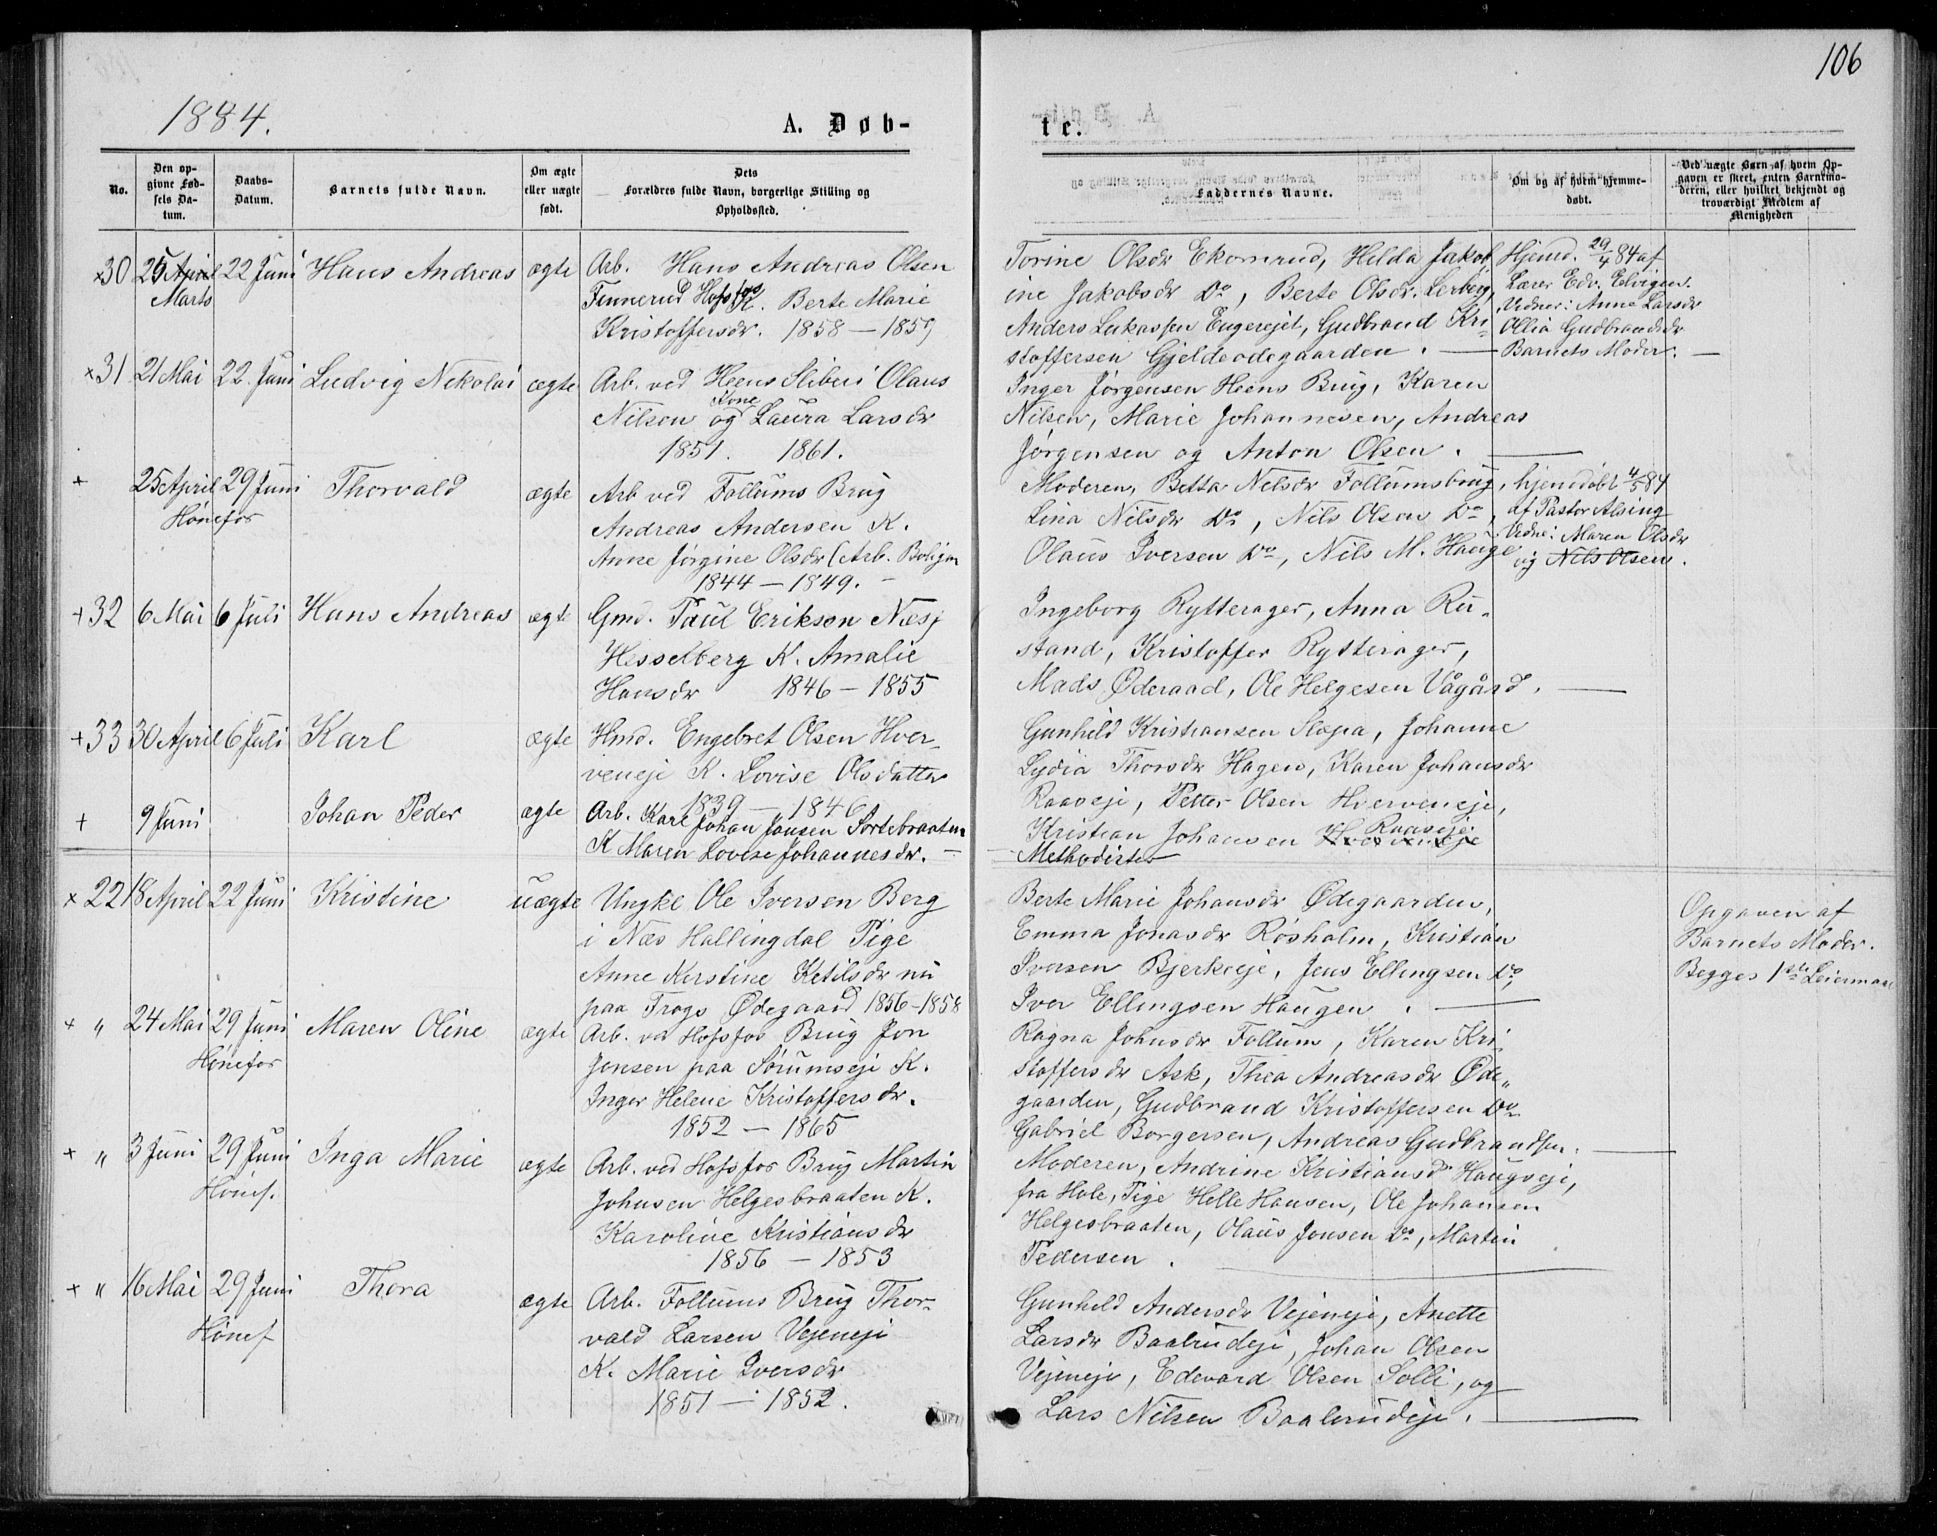 106
1884.
A. Døb-
te.
No.
Den op-
givne Fød-
sels Da-
tum.
Daabs-
Datum.
Barnets fulde Navn.
Om ægte
eller uægte
født.
Dets
Forældres fulde Navn, borgerlige Stilling og
Opholdssted.
Faddernes Navne.
Om og af hvem hjemme-
døbt.
Ved uægte Børn af hvem Op-
gaven er skeet, enten Barnemo-
deren, eller hvilket bekjendt og
troværdigt Medlem af
Menigheden
×30 25 April 22 Juni Hans Andreas ægte
Marts
Arb. Hans Andreas Olsen
Tinnerud Hofsfos K. Berte Marie
Kristoffersdr. 1858 — 1859
Torine Olsdr Ekornrud, Hilda Jakob
ine Jakobsdr Do, Berte Olsdr. Lerberg,
Anders Lukassen Engerejet, Gudbrand Kri-
stoffersen Gjeldeodegaarden.
Hjemd. 29/4 84 af
Lærer Edv. Elvigen.
Vidner: Anne Larsdr
Ollia Gudbrandsdr
Barnets Moder. —
×31 21 Mai 22. Juni Ludvig Nikolai ægte
Arb. ved Heens Sliberi Olaus
Kone
Nilsen og Laura Larsdr
1851. 1861.
Inger Jørgensen Heens Brug, Karen
Nilsen, Marie Johannesen, Andreas
Jørgensen og Anton Olsen.
+ 25 April 29 Juni Thorvald ægte
Hønefos
Arb ved Follums Brug
Andreas Andersen K.
Anne Jørgine Olsdr (Arb. Boligen
1844 — 1849. —
Moderen, Betta Nelsdr Follumsbrug,
Lina Nilsdr Do, Nils Olsen Do,
Olaus Iversen Do, Nils M. Hauge
hjemdøbt 4/5 84
af Pastor Alsing
Vidne: Maren Olsdr
og Nils Olsen.
+32 6 Mai 6 Juli Hans Andreas ægte
Gmd. Paul Eriksen Næsj
Hesselberg K. Amalie
Hansdr 1846 — 1855
Ingeborg Rytterager, Anna Ru-
stand, Kristoffer Rytterager,
Mads Øderaad, Ole Helgesen Vågård.
+33 30 April 6 Juli Karl ægte
Hmd. Engebret Olsen Hver-
veneje K. Lovise Olsdatter
1839 — 1846
Gunhild Kristiansen Slagna, Johanne
Lydia Thorsdr Hagen, Karen Johansdr
Raaveje, Petter Olsen Hverveneje,
Kristian Johansen Hverveneje
Raaveje
+ 9 Juni Johan Peder ægte
Arb. Karl Johan Jansen Sortebraaten
K Maren Lovise Johannesdr. —
Methodister
× 22 18 April 22 Juni Kristine uægte
Ungke Ole Iversen Berg
i Næs Hallingdal Pige
Anne Kerstine Ketilsdr nu
paa Trogs Ødegaard 1856–1858
Berte Marie Johansdr Ødegaarden,
Emma Jonasdr Rosholm, Kristian
Iversen Bjerkeje, Jens Ellingsen Do,
Iver Ellingsen Haugen.
Opgaven af
Barnets Moder.
Begges 1ste Leiermaal
+ " 24 Mai 29 Juni Maren Oline ægte
Hønefos
Arb. ved Hofsfos Brug Jon
Jonsen paa Sørumseje K.
Inger Helene Kristoffersdr.
1852 — 1865
Ragna Johnsdr Follum, Karen Kri-
stoffersdr Ask, Thea Andreasdr Øde-
gaarden, Gudbrand Kristoffersen Do
Gabriel Borgersen, Andreas Gudbrandsen.
+ " 3 Juni 29 Juni Inga Marie ægte
Hønef.
Arb. ved Hofsfos Brug Martin
Johnsen Helgesbraaten K.
Karoline Kristiansdr
1856 — 1853
Moderen, Andrine Kristiansd Haugseje,
fra Hole, Pige Helle Hansen, Ole Johansen
Helgesbraaten, Olaus Jonsen Do, Martin
Pedersen.
+ " 16 Mai 29 Juni Thora ægte
Hønef
Arb. Follums Brug Thor-
vald Larsen Vejeneje
K. Marie Iversdr
1851 — 1852.
Gunhild Andersdr Vejeneje, Anette
Larsdr Baalrudeje, Johan Olsen
Vejeneje, Edevard Olsen Solli, og
Lars Nilsen Baalerudeje.